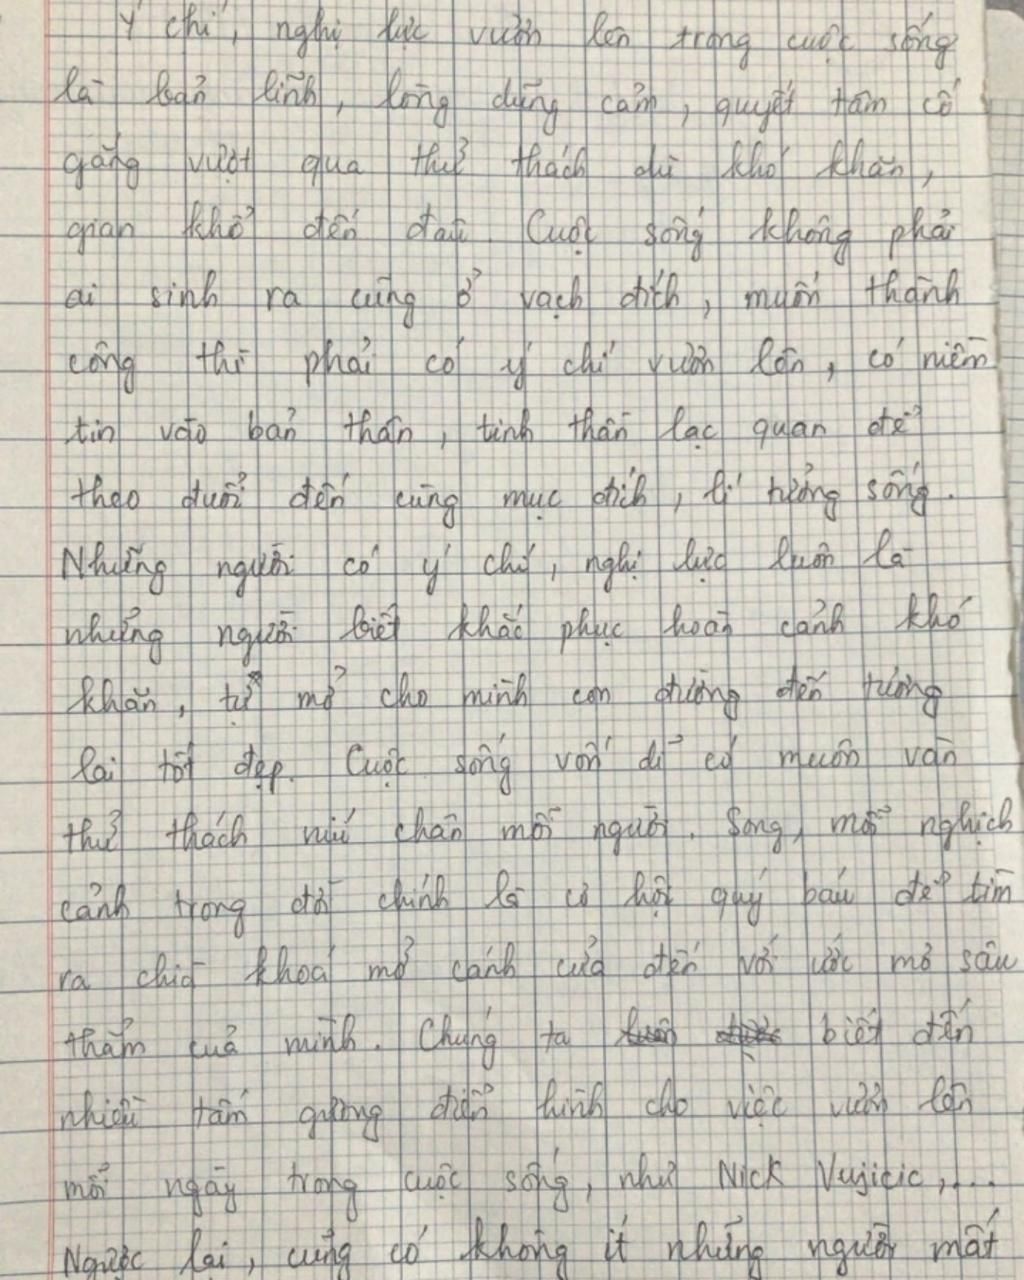 Ý chí, nghị lực vươn lên trong cuộc sống
là bản lĩnh, lòng dũng cảm, quyết tâm cố
gắng vượt qua thử thách dù khó khăn,
gian khổ đến đâu. Cuộc sống không phải
ai sinh ra cũng ở vạch đích, muốn thành
công thì phải có ý chí vươn lên, có niềm
tin vào bản thân, tinh thần lạc quan để
theo đuổi đến cùng mục đích, lí tưởng sống.
Những người có ý chí, nghị lực luôn là
những người biết khắc phục hoàn cảnh khó
khăn, tự mở cho mình con đường đến tương
lai tốt đẹp. Cuộc sống vốn dĩ có muôn vàn
thử thách níu chân mỗi người. Song, mỗi nghịch
cảnh trong đời chính là cơ hội quý báu để tìm
ra chìa khoá mở cánh cửa đến với ước mơ sâu
thẳm của mình. Chúng ta biết đến
nhiều tấm gương điển hình cho việc vươn lên
mỗi ngày trong cuộc sống, như Nick Vujicic,...
Ngược lại, cũng có không ít những người mất